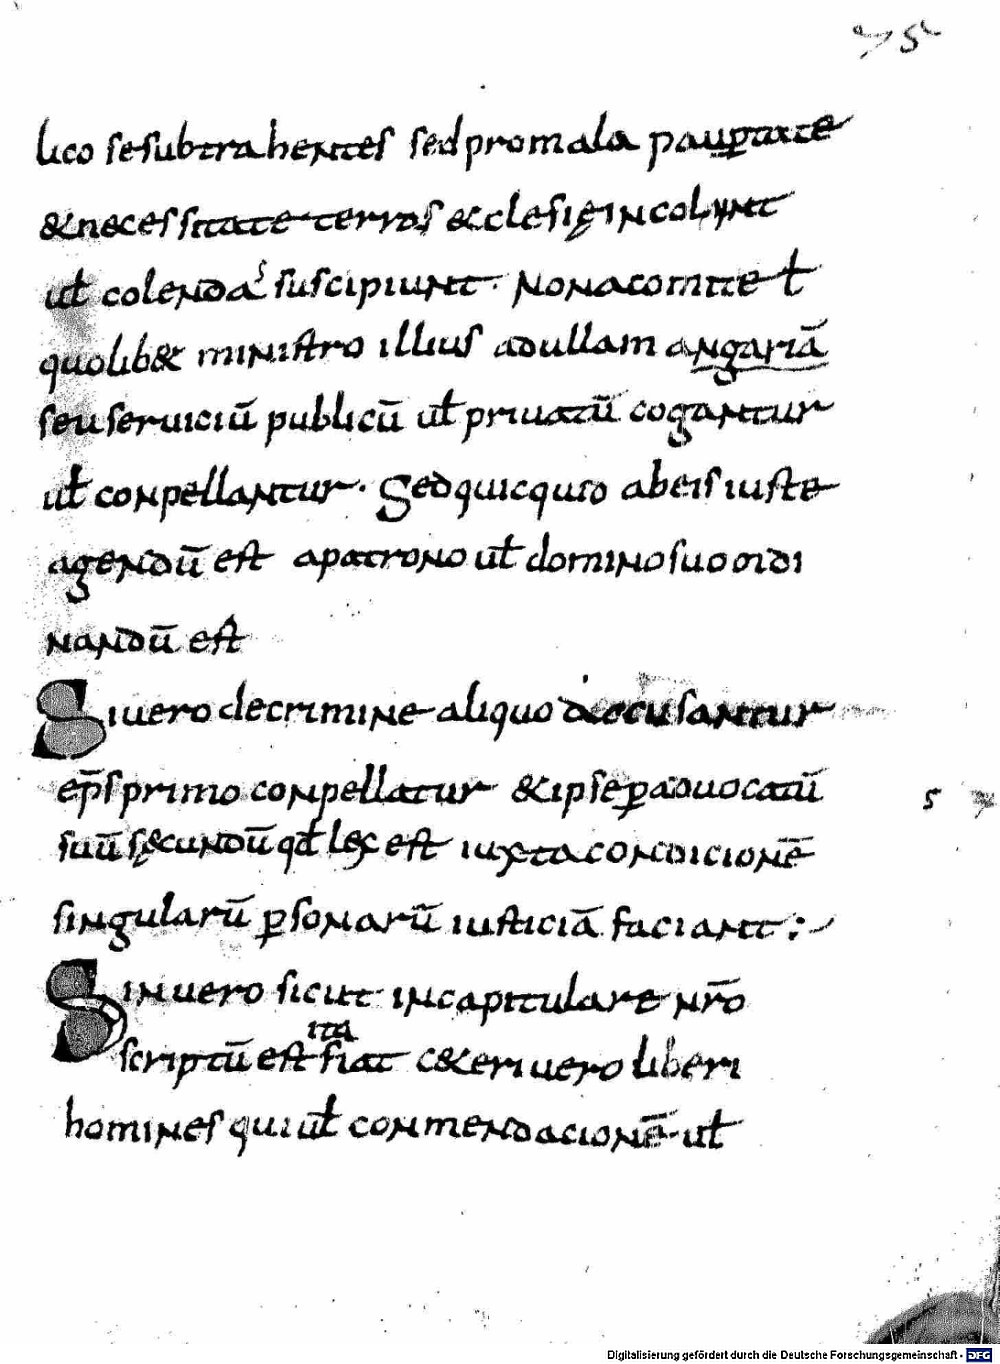 75
lico se subtrahentes sed pro mala paup̄tate
& necessitate terras &clesię incolunt
ul̄ colendas suscipiunt. Non a comite l̄
quolib& ministro illius ad ullam angariā
seu seruiciū publicū ul̄ priuatū cogantur
ul̄ conpellantur. Sed quicquid ab eis iuste
agendū est a patrono ul̄ domino suo ordi
nandū est
Si uero de crimine aliquo accusantur
ep̄s primo conpellatur & ipse p̄ aduocatū
suū sęcundū qd̄ lex est iuxta condicionē
singularū p̄sonarū iusticiā faciant :
Sin uero sicut in capitulare nr̄o
scriptū est ita fiat c&eri uero liberi
homines qui ul̄ conmendacionē ul̄
Digitalisierung gefördert durch die Deutsche Forschungsgemeinschaft - DFG